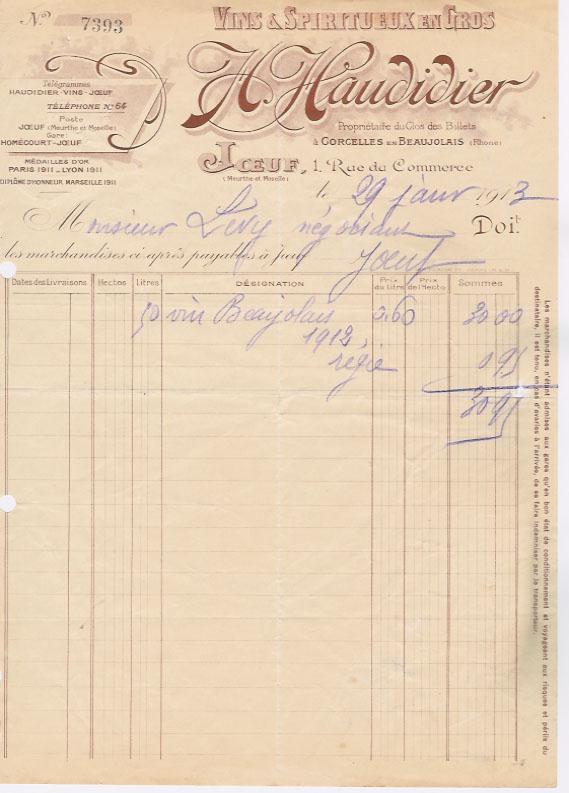 Nº 7393
VINS & SPIRITUEUX EN GROS
H. Haudidier
Télégrammes
HAUDIDIER-VINS-JŒUF
TÉLÉPHONE Nº 64
Poste
JŒUF (Meurthe et Moselle)
Gare:
HOMÉCOURT-JŒUF
MÉDAILLES D'OR
PARIS 1911 _ LYON 1911
DIPLÔME D'HONNEUR, MARSEILLE 1911
Propriétaire du Clos des Billets
à CORCELLES EN BEAUJOLAIS (Rhône)
JŒUF, 1, Rue du Commerce
(Meurthe et Moselle)
le 29 janvr 1913
Monsieur Levy négociant Doit
les marchandises ci après payables à Jœuf
Jœuf
Dates des Livraisons Hectos Litres DÉSIGNATION Prix du Litre Prix de l'Hecto Sommes
50 vin Beaujolais 0,60 30 00
1912,
régie 0 95
30 95
Les marchandises n'étant admises aux gares qu'en bon état de conditionnement et voyageant aux risques et périls du
destinataire, il est tenu, en cas d'avaries à l'arrivée, de se faire indemniser par le transporteur.